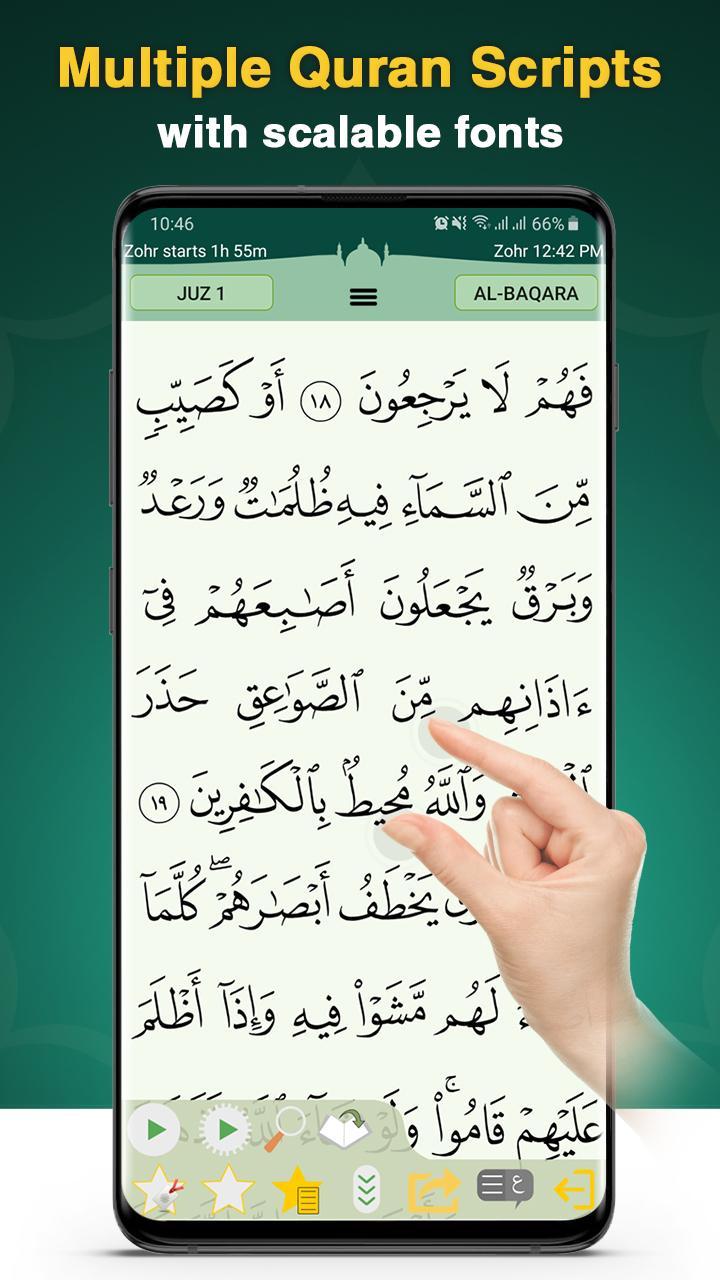 Multiple Quran Scripts
with scalable fonts
10:46
66%
Zohr starts 1h 55m
Zohr 12:42 PM
JUZ 1
AL-BAQARA
فَهُمْ لَا يَرْجِعُونَ ١٨ أَوْ كَصَيِّبٍ
مِّنَ ٱلسَّمَآءِ فِيهِ ظُلُمَٰتٌ وَرَعْدٌ
وَبَرْقٌ يَجْعَلُونَ أَصَٰبِعَهُمْ فِىٓ
ءَاذَانِهِم مِّنَ ٱلصَّوَٰعِقِ حَذَرَ
وَٱللَّهُ مُحِيطٌۢ بِٱلْكَٰفِرِينَ ١٩
يَخْطَفُ أَبْصَٰرَهُمْ ۖ كُلَّمَآ
لَهُم مَّشَوْا۟ فِيهِ وَإِذَآ أَظْلَمَ
عَلَيْهِمْ قَامُوا۟ ۚ وَلَوْ
ع